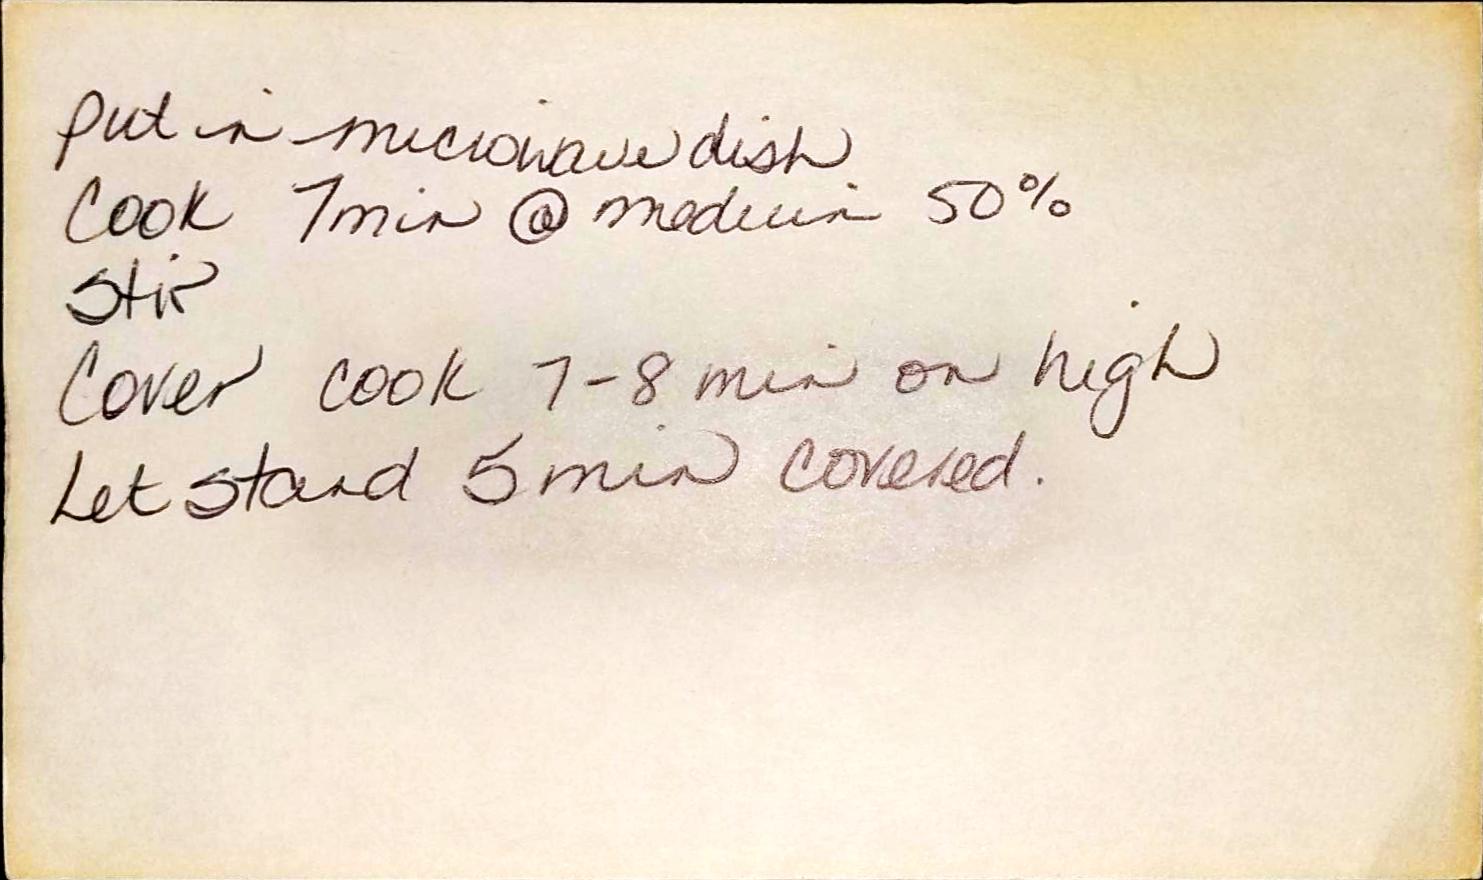 Put in microwave dish
Cook 7 min @ medium 50%
Stir
Cover cook 7-8 min on high
Let stand 5 min covered.